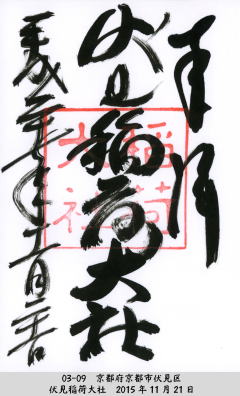 奉拝
伏見稲荷大社
平成二十七年十一月二十一日
稲荷
大社
03-09 京都府京都市伏見区
伏見稲荷大社 2015年11月21日